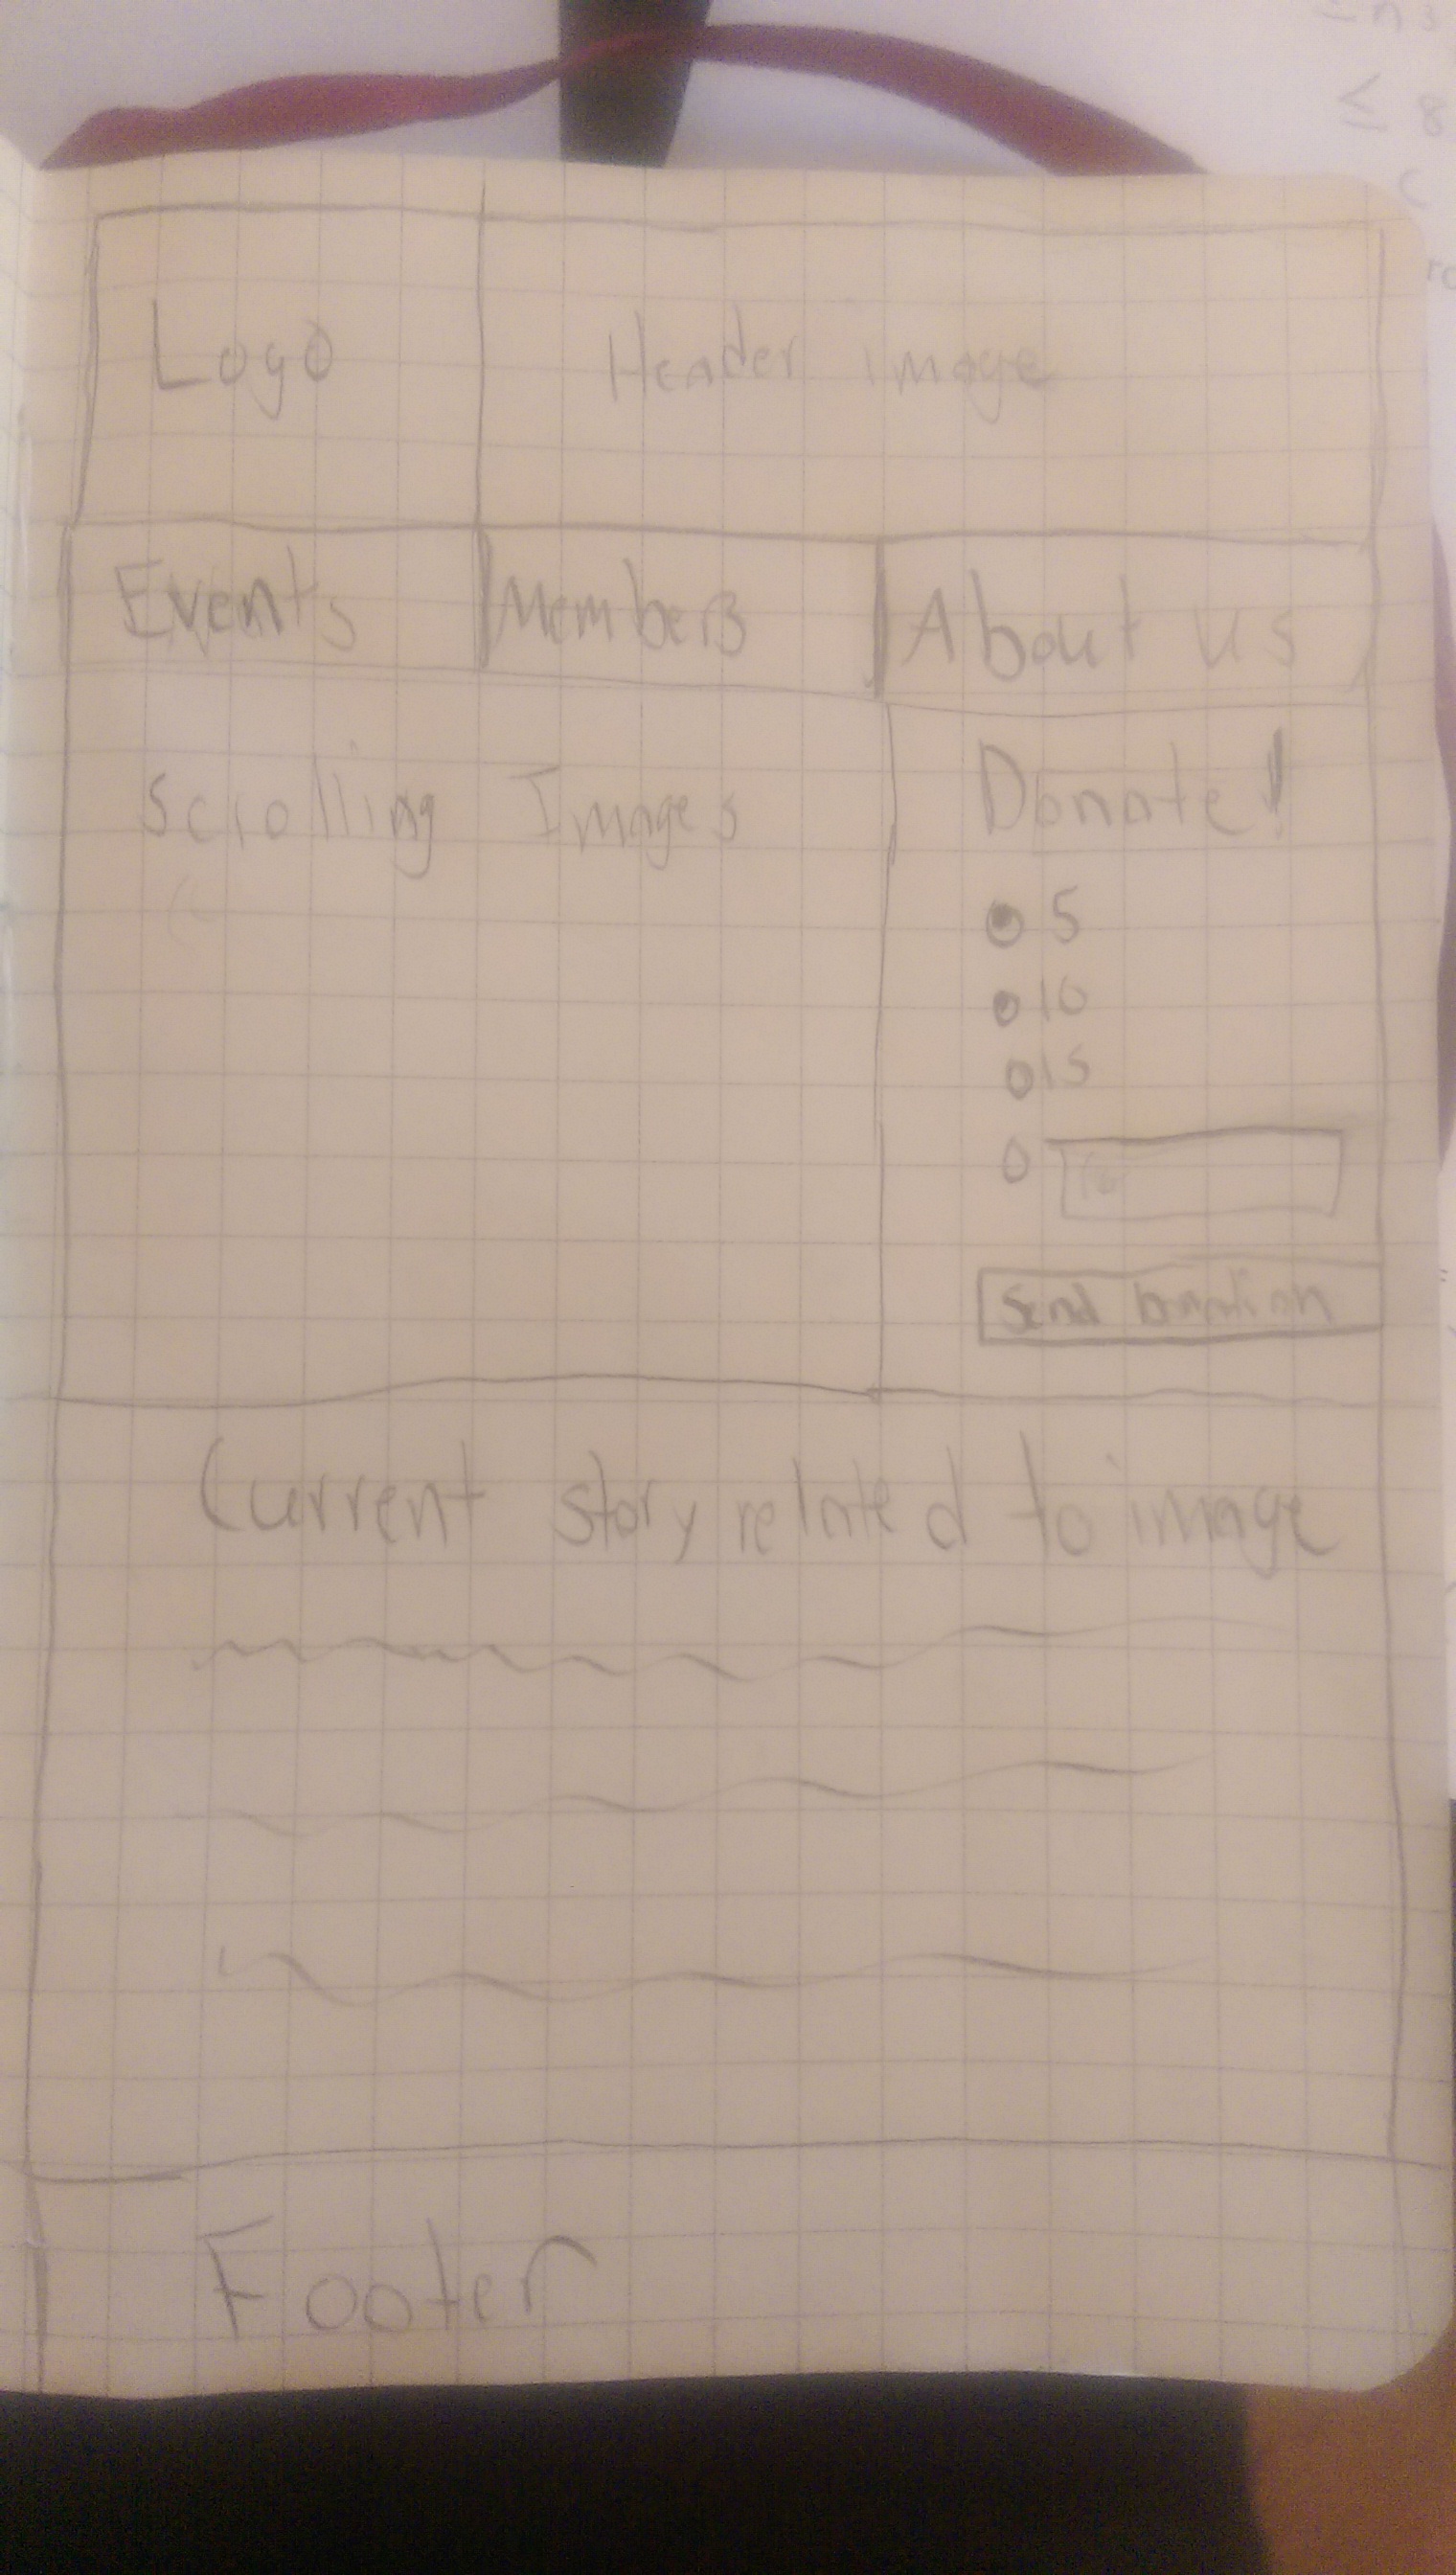 Logo Header image
Events Members About us
Scrolling Images Donate!
5
10
15
Send
Current story related to image
Footer